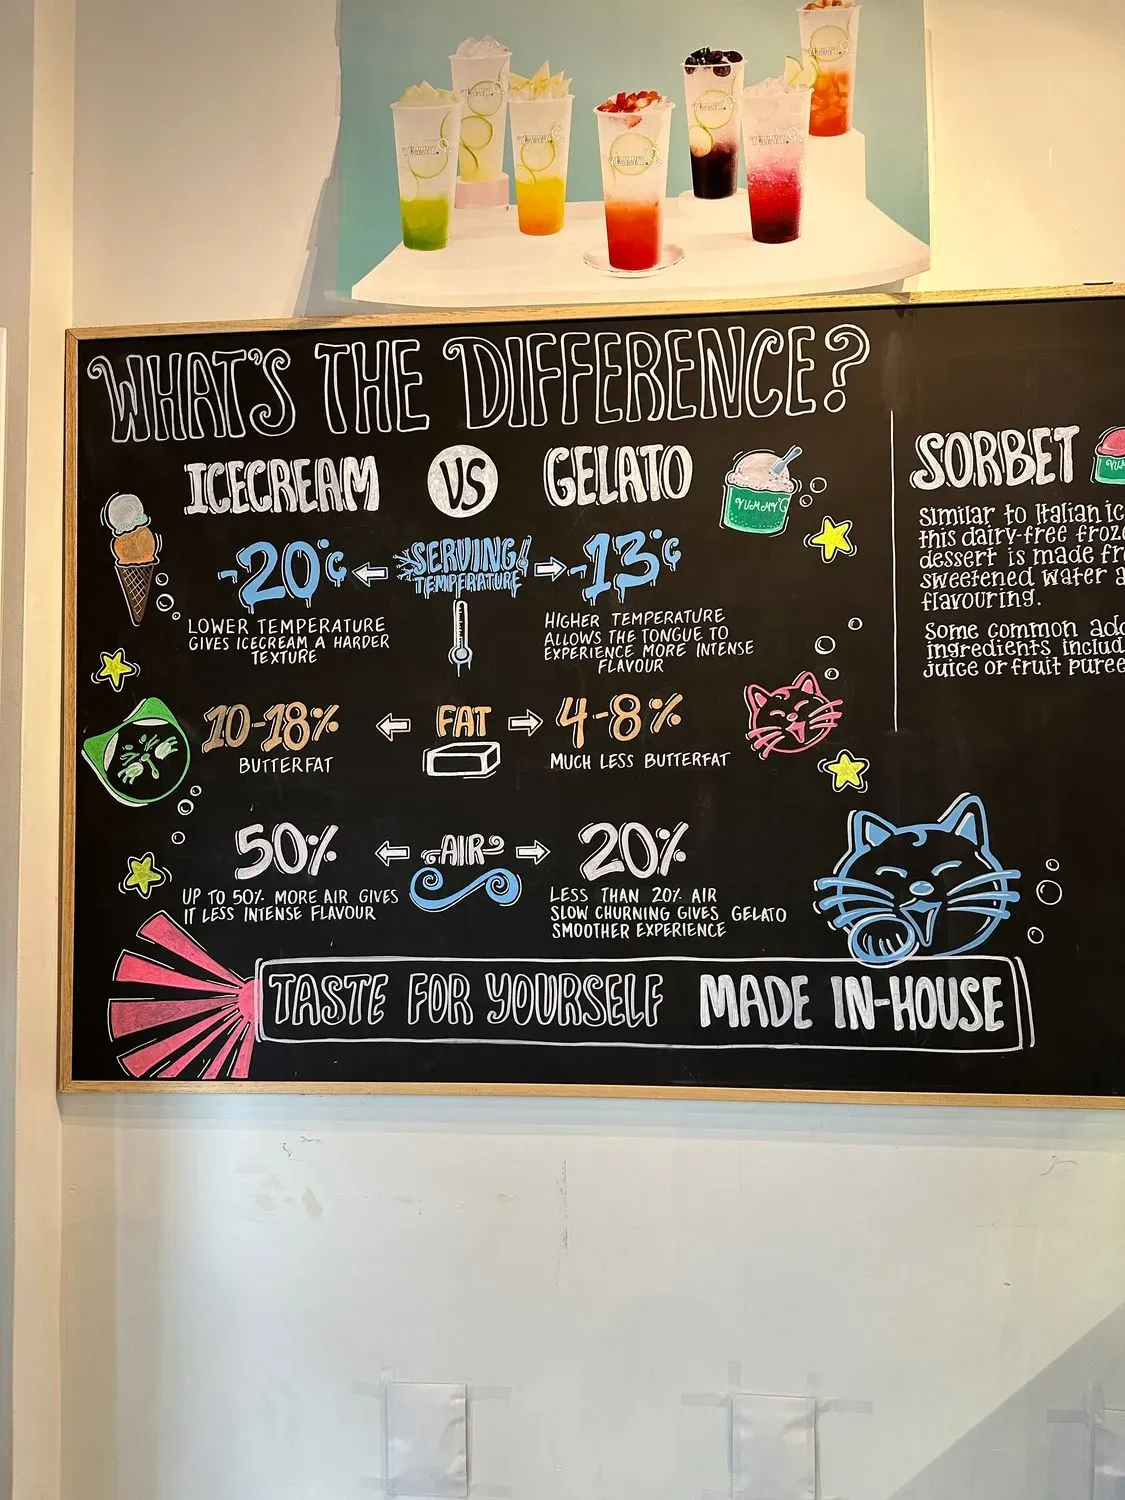 WHAT'S THE DIFFERENCE?
ICECREAM VS GELATO
YUMMY°C
-20°C SERVING! -13°C
TEMPERATURE
LOWER TEMPERATURE
GIVES ICECREAM A HARDER
TEXTURE
HIGHER TEMPERATURE
ALLOWS THE TONGUE TO
EXPERIENCE MORE INTENSE
FLAVOUR
10-18% FAT 4-8%
BUTTERFAT
MUCH LESS BUTTERFAT
50% AIR 20%
UP TO 50% MORE AIR GIVES
IT LESS INTENSE FLAVOUR
LESS THAN 20% AIR
SLOW CHURNING GIVES GELATO
SMOOTHER EXPERIENCE
TASTE FOR YOURSELF MADE IN-HOUSE
SORBET
Similar to Italian ic
this dairy-free froze
dessert is made fr
sweetened water a
flavouring.
Some common add
ingredients includ
juice or fruit puree